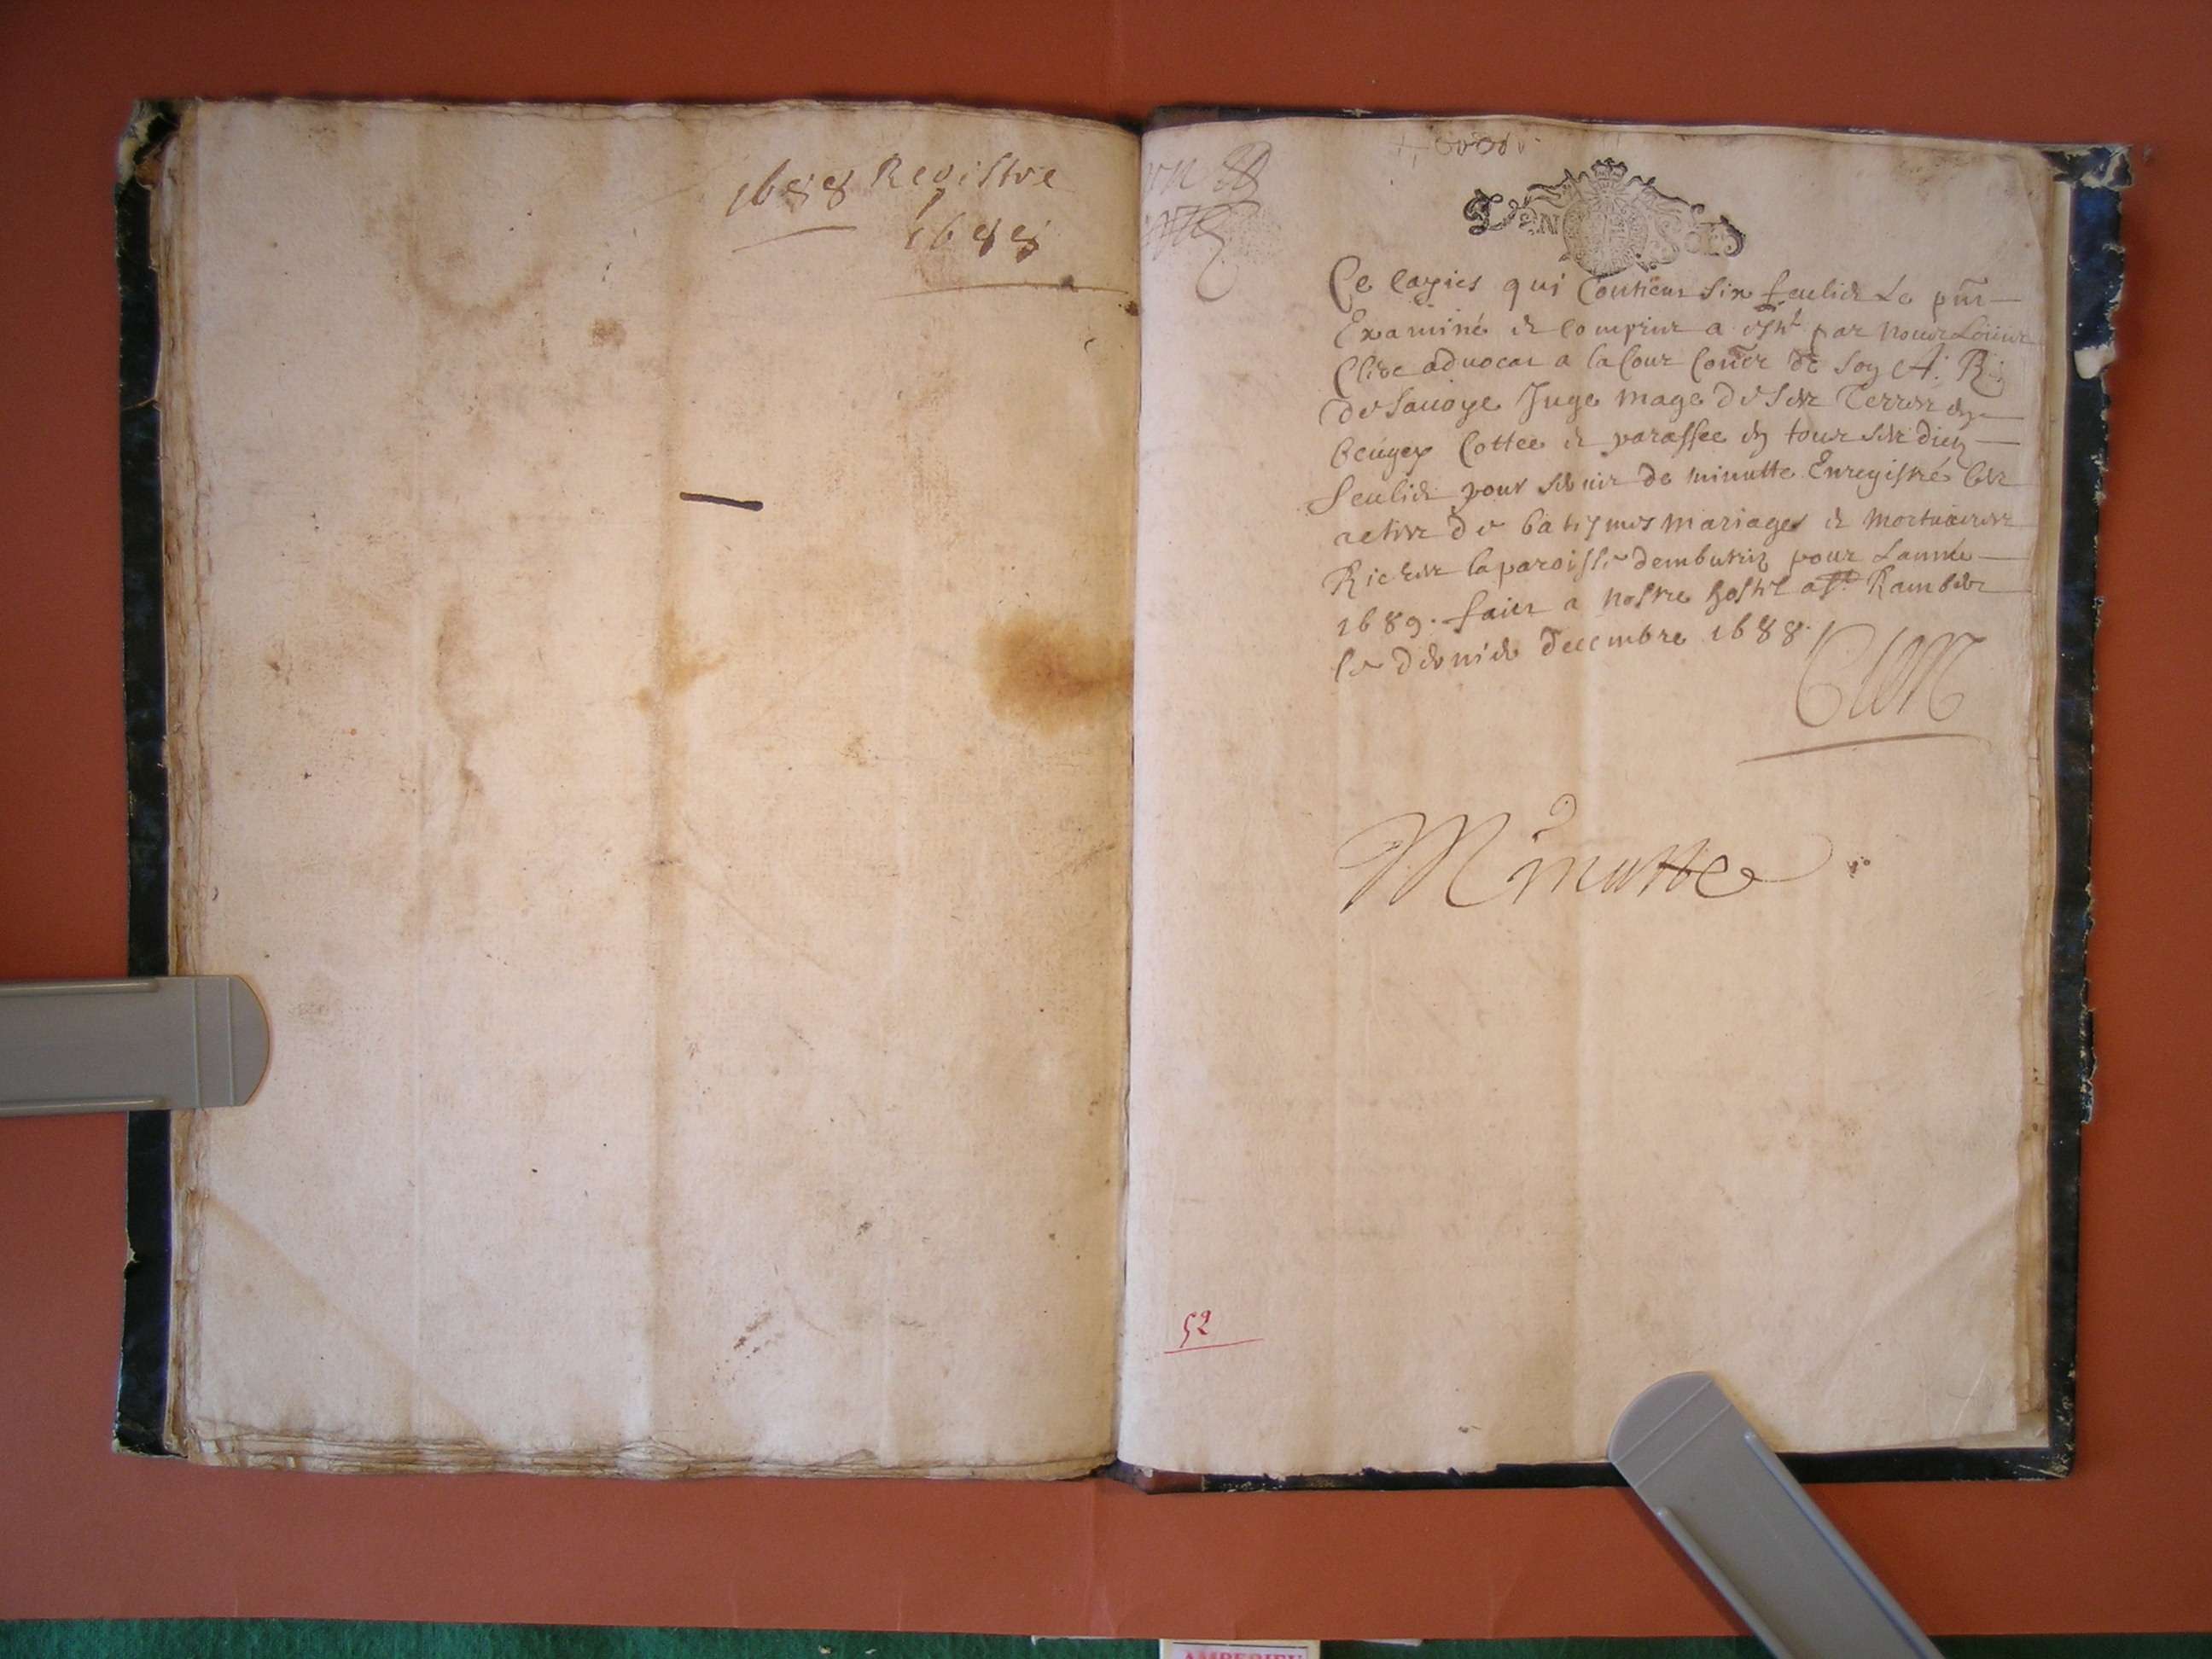 1688 Registre
1688
Ce cayier qui contient six feulietz Le pnt
Examiné et
Clerc advocat a la Cour Coner de Son A. R.
de Savoye Juge mage de ses Terres en
beugey Cottee et paraffee en tous ses dietz
feulietz pour servir de minutte Enregistré les
actes de batismes mariages et mortuaires
Riere la paroisse dembutrix pour Lannée
1689. faict a nostre hostel a St Rambert
le dernier decembre 1688.
Minutte
52